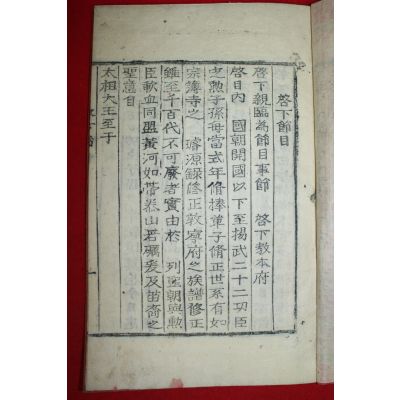 啓下節目
啓下親臨為節目事節 啓下教本府
啓目内 國朝開國以下至揚武二十二功臣
之勲子孫毎當式年脩捧單子脩正世系有如
宗簿寺之 璿源録修正敦寧府之族譜修正
雖至千百代不可廢者實由於 列聖朝與勲
臣歃血同盟黄河如帶泰山若礪爰及苗裔之
聖意自
太祖大王至于